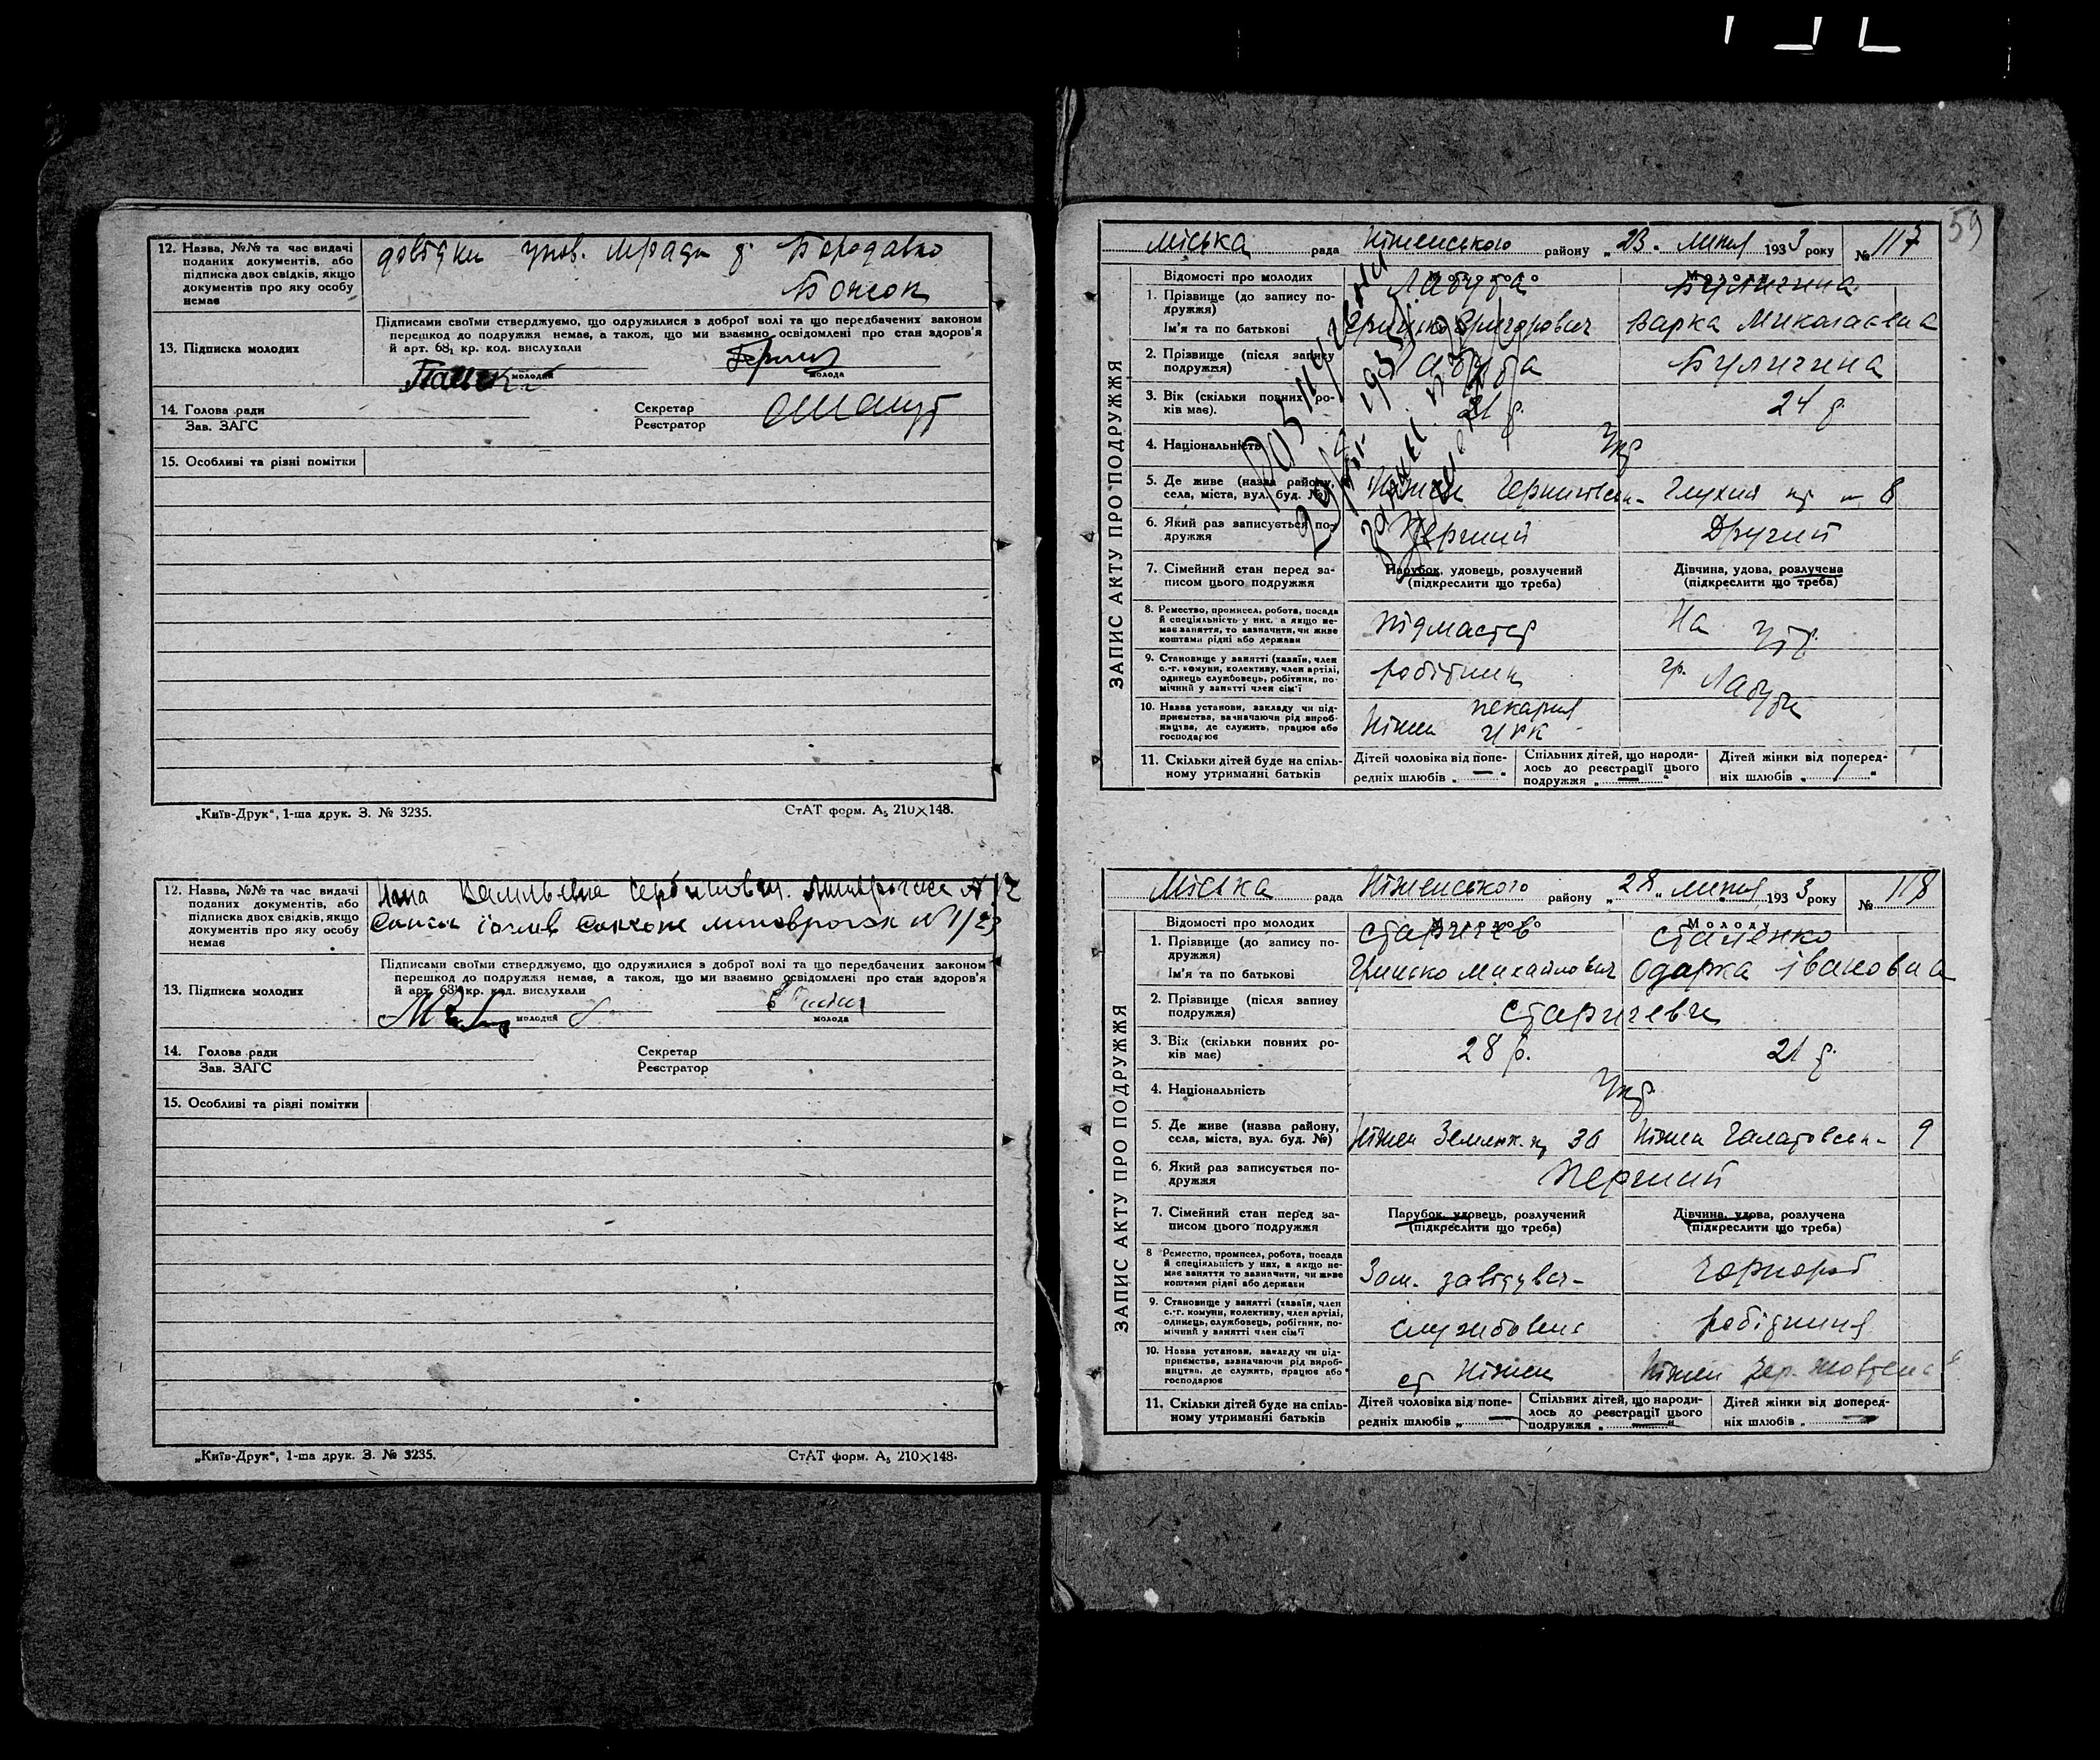 12. Назва, №№ та час видачі
поданих документів, або
підписка двох свідків, якщо
документів про яку особу
немає
довідки упов. мради
Бородавко
13. Підписка молодих
Підписами своїми стверджуємо, що одружилися з доброї волі та що передбачених законом
перешкод до подружжя немає, а також, що ми взаємно освідомлені про стан здоров'я
й арт. 68₁ кр. код. вислухали
молодий
молода
14. Голова ради
Зав. ЗАГС
Секретар
Реєстратор
15. Особливі та різні помітки
„Київ-Друк“, 1-ша друк. З. № 3235.
СтАТ форм. А₅ 210×148.
12. Назва, №№ та час видачі
поданих документів, або
підписка двох свідків, якщо
документів про яку особу
немає
13. Підписка молодих
Підписами своїми стверджуємо, що одружилися з доброї волі та що передбачених законом
перешкод до подружжя немає, а також, що ми взаємно освідомлені про стан здоров'я
й арт. 68¹ кр. код. вислухали
молодий
молода
14. Голова ради
Зав. ЗАГС
Секретар
Реєстратор
15. Особливі та різні помітки
„Київ-Друк“, 1-ша друк. З. № 3235.
СтАТ форм. А₅ 210×148.
59
міська рада Ніженського району „23“ липня 1933 року № 117
ЗАПИС АКТУ ПРО ПОДРУЖЖЯ
Відомості про молодих
Молодого
Молоду
1. Прізвище (до запису по-
дружжя)
Лабуба
Буличина
Ім'я та по батькові
Грицько Григорович
Варка Миколаєвна
2. Прізвище (після запису
подружжя)
Лабуба
Буличина
3. Вік (скільки повних ро-
ків має).
21 р.
24 р.
4. Національність
Укр
5. Де живе (назва району,
села, міста, вул. буд. №)
Ніжен Чернігівськ-
Глухий 8
6. Який раз записується по-
дружжя
Перший
Другий
7. Сімейний стан перед за-
писом цього подружжя
Парубок, удовець, розлучений
(підкреслити що треба)
Дівчина, удова, розлучена
(підкреслити що треба)
8. Ремество, промисел, робота, посада
й спеціяльність у них, а якщо не-
має заняття, то зазначити, чи живе
коштами рідні або держави
підмастер
На утр.
9. Становище у занятті (хазяїн, член
с.-г. комуни, колективу, член артілі,
одинець службовець, робітник, по-
мічний у занятті член сім'ї
робітник
гр. Лабуби
10. Назва установи, закладу чи під-
приємства, зазначаючи рід вироб-
ництва, де служить, працює або
господарює
Ніжен пекарня
ЦРК
11. Скільки дітей буде на спіль-
ному утриманні батьків
Дітей чоловіка від попе-
редніх шлюбів „ — “
Спільних дітей, що народи-
лось до реєстрації цього
подружжя „ — “
Дітей жінки від поперед-
ніх шлюбів „ “
Міська рада Ніженського району „28“ липня 1933 року № 118
ЗАПИС АКТУ ПРО ПОДРУЖЖЯ
Відомості про молодих
Молодого
Молоду
1. Прізвище (до запису по-
дружжя)
Старичев
Сталенко
Ім'я та по батькові
Грицько Михайлович
Одарка Івановна
2. Прізвище (після запису
подружжя)
Старичеви
3. Вік (скільки повних ро-
ків має)
28 р.
21 р.
4. Національність
Укр
5. Де живе (назва району,
села, міста, вул. буд. №)
Ніжен 36
Ніжен Галатовськ- 9
6. Який раз записується по-
дружжя
Перший
7. Сімейний стан перед за-
писом цього подружжя
Парубок, удовець, розлучений
(підкреслити що треба)
Дівчина, удова, розлучена
(підкреслити що треба)
8 Ремество, промисел, робота, посада
й спеціяльність у них, а якщо не-
має заняття то зазначити, чи живе
коштами рідні або держави
Зам. завідувач-
Чорнороб
9. Становище у занятті (хазяїн, член
с.-г. комуни, колективу, член артілі,
одинець, службовець, робітник, по-
мічний у занятті член сім'ї
службовець
робітниця
10. Назва установи, закладу чи під-
приємства, зазначаючи рід вироб-
ництва, де служить, працює або
господарює
ст Ніжен
Ніжен
11. Скільки дітей буде на спіль-
ному утриманні батьків
Дітей чоловіка від попе-
редніх шлюбів „ — “
Спільних дітей, що народи-
лось до реєстрації цього
подружжя „ — “
Дітей жінки від поперед-
ніх шлюбів „ — “